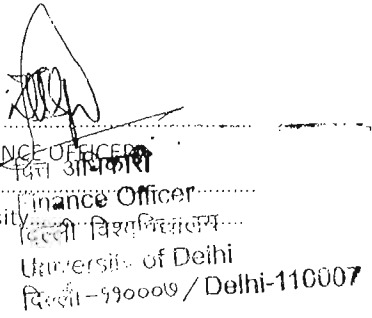 NCE OFFICER
वित्त अधिकारी
Finance Officer
sity
दिल्ली विश्वविद्यालय
University of Delhi
दिल्ली-११०००७ / Delhi-110007